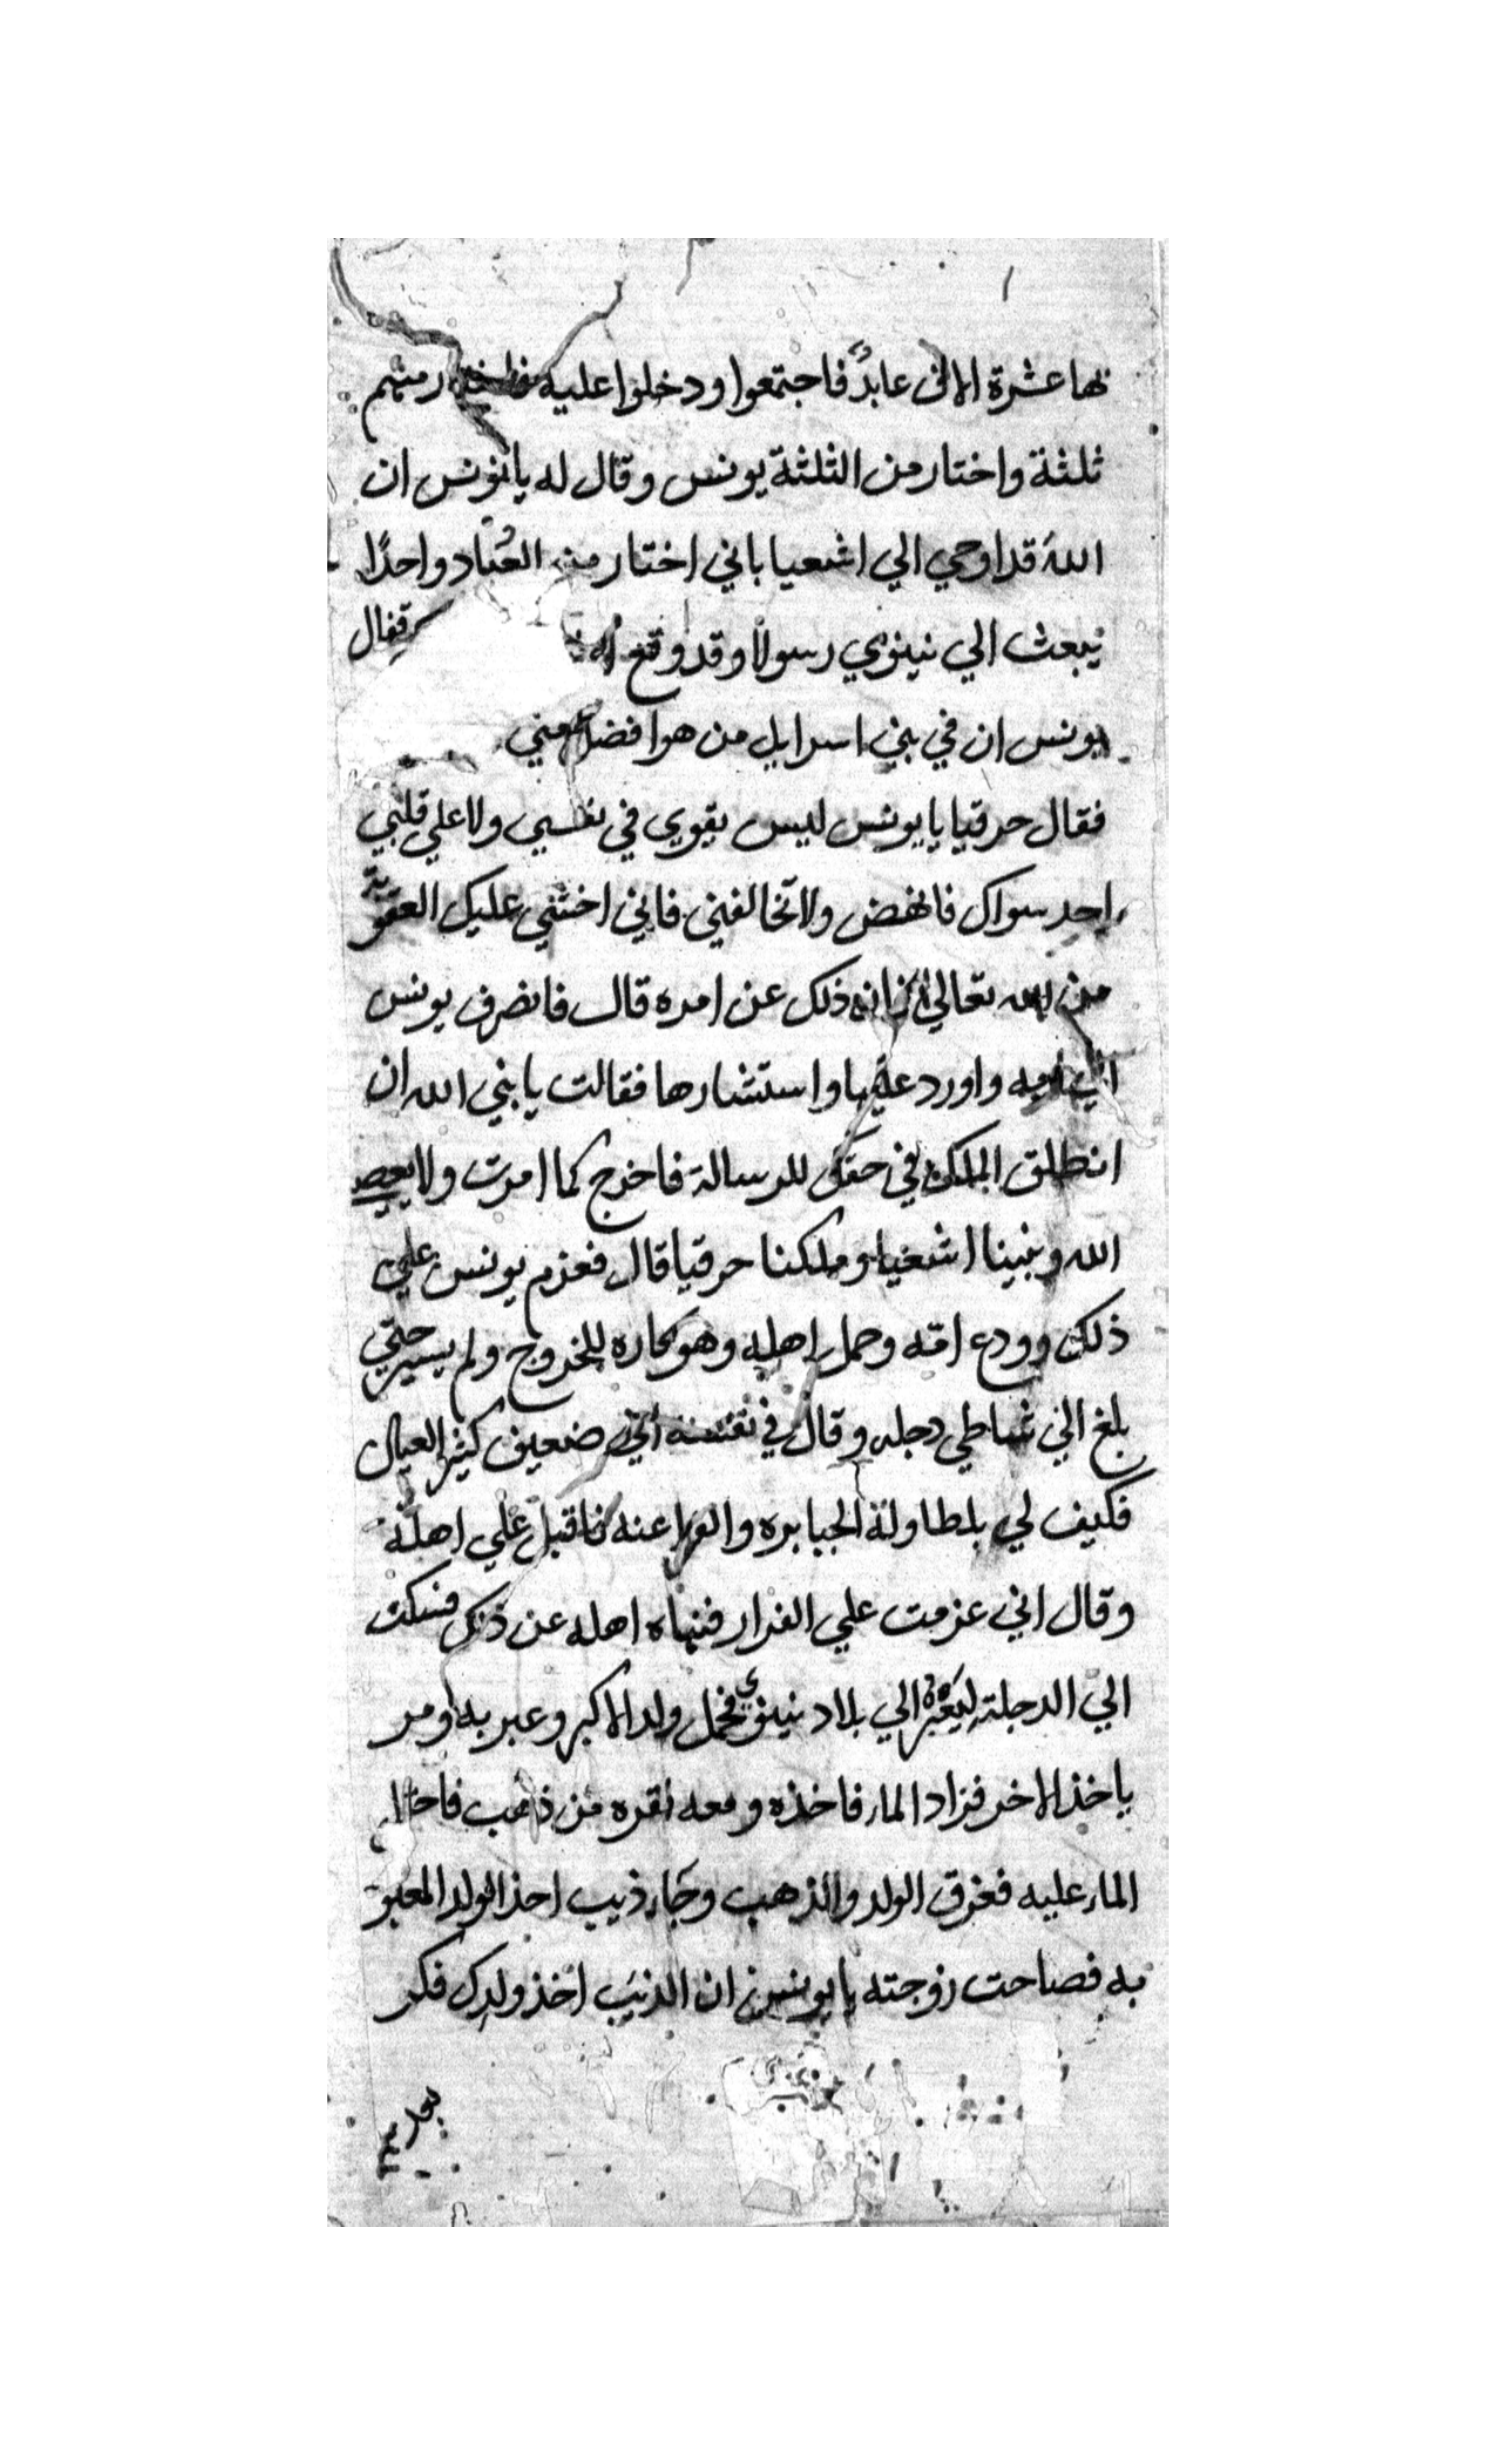 بها عشرة الاف عابدٌ فاجتمعوا ودخلوا عليه فاختار منهم
ثلثة واختار من الثلثة يونس وقال له يا يونس ان
الله قد اوحي الي اشعيا باني اختار من العُباد واحدًا
يبعث الي نينوي رسولا وقد وقع فقال
يونس ان في بني اسرايل من هو افضل مني
فقال حزقيا يا يونس ليس يقوي في نفسي ولا علي قلبي
احد سواك فانهض ولا تخالفني فاني اخشي عليك العقوبة
من الله تعالي ذلك عن امره قال فانصرف يونس
الي امه واورد عليها واستشارها فقالت يا بني الله ان
انطلق الملك في حقك للرسالة فاخرج كما امرت ولا يعصي
الله ونبينا اشعيا وملكنا حزقيا قال فعزم يونس علي
ذلك وودع امه وحمل اهله وهو كاره للخروج ولم يسير حتي
بلغ الي شاطي دجله وقال في نفسه اني ضعيف كثير العيال
فكيف لي بمطاولة الجبابره عنه فاقبل علي اهله
وقال اني عزمت علي الفرار فنهاه اهله عن ذلك فسكت
الي الدجلة ليَعْبُر الي بلاد نينوي فحمل ولد الاكبر وعبر به ومر
ياخذ الاخر فزاد الماء فاخذه ومعه نقره من ذهب
الماء عليه فغرق الولد والذهب وجاء ذيب اخذ الولد المعبو
به فصاحت زوجته يا يونس ان الذيب اخذ ولدك فكر